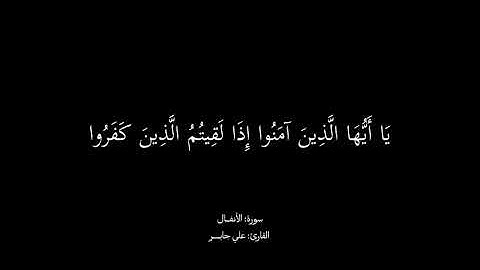 يَا أَيُّهَا الَّذِينَ آمَنُوا إِذَا لَقِيتُمُ الَّذِينَ كَفَرُوا
سورة: الأنفـال
القارئ: علي جابـــر